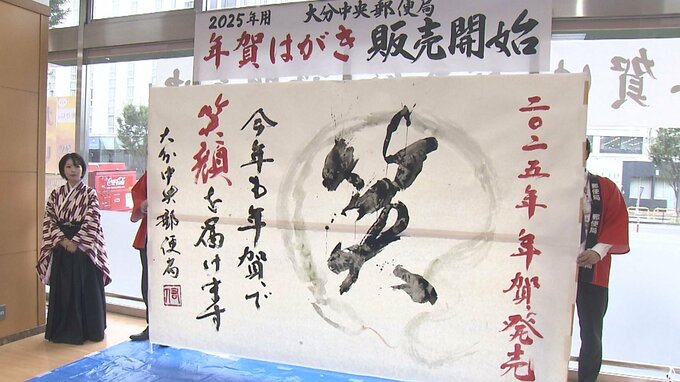 2025年用 大分中央郵便局
年賀はがき 販売開始
二〇二五年 年賀発売
笑
今年も年賀で
笑顔を届けます
大分中央郵便局
Coca-Cola
郵便局 郵便局